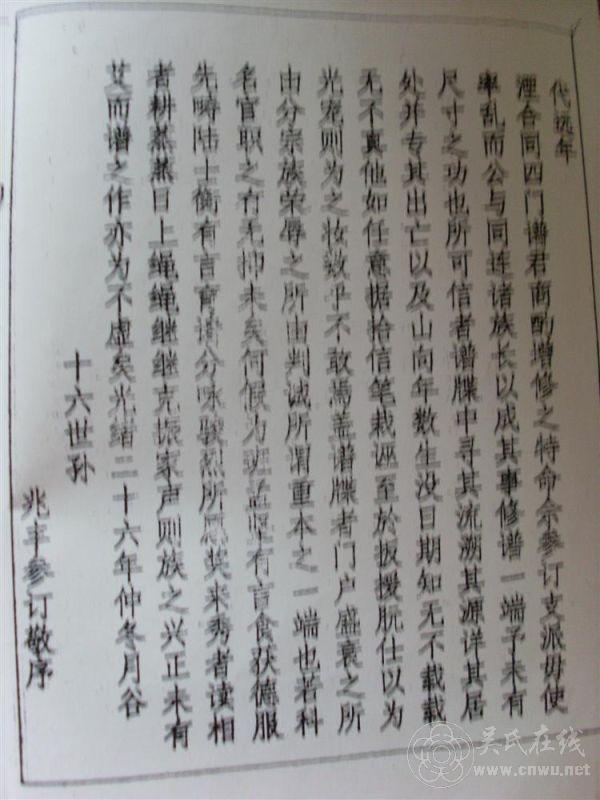 代远年
湮合同四门谱君商酌增修之特命余参订支派毋使
率乱而公与同连诸族长以成其事修谱一端予未有
尺寸之功也所可信者谱牒中寻其流溯其源详其居
处并专其出亡以及山向年数生没日期知无不载载
无不真他如任意据拾信笔栽诬至於扳援朊仕以为
光宠则为之妆数乎不敢焉盖谱牒者门户盛衰之所
由分宗族荣辱之所由判诚所谓重本之一端也若科
名官职之有无抑未矣何假为班孟坚有言食获德服
先畴陆士衡有言育谱分咏骏烈所愿英来秀者读相
者耕蒸蒸日上绳绳继继克振家声则族之兴正未有
艾而谱之作亦为不虚矣光绪二十六年仲冬月谷
十六世孙
兆丰参订敬序
吴氏在线
www.cnwu.net